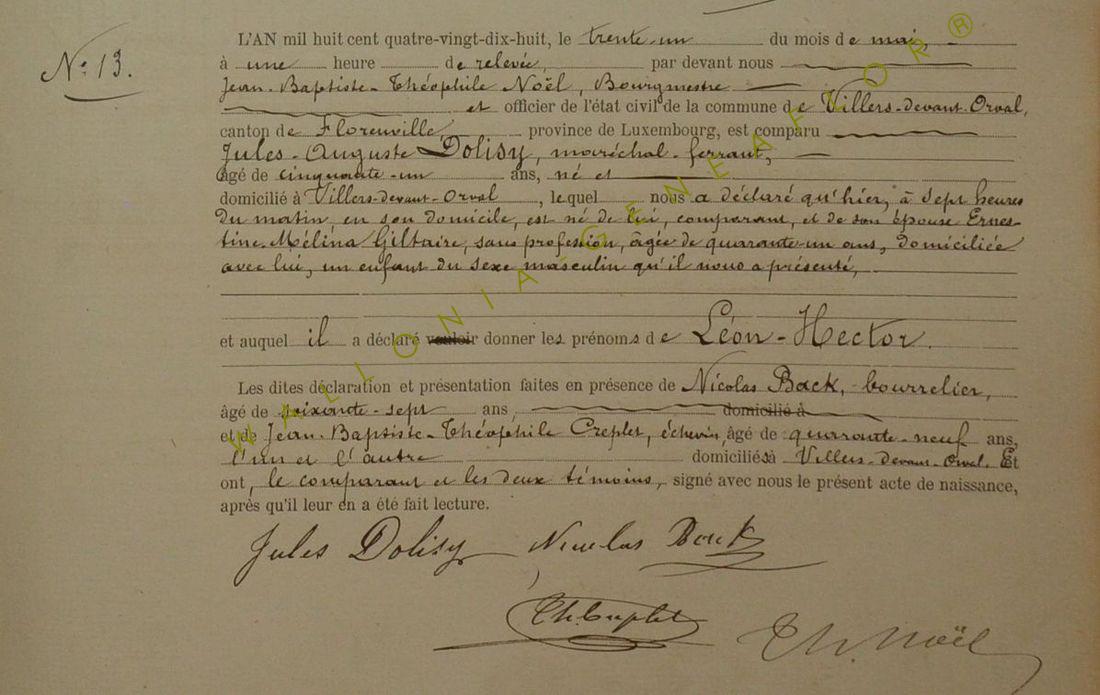 N° 13.
L'AN mil huit cent quatre-vingt-dix-huit, le trente-un du mois de mai,
à une heure de relevée, par devant nous
Jean-Baptiste-Théophile Noël, Bourgmestre
et officier de l'état civil de la commune de Villers-devant-Orval,
canton de Florenville, province de Luxembourg, est comparu
Jules-Auguste Dolisy, maréchal-ferrant,
âgé de cinquante-un ans, né et
domicilié à Villers-devant-Orval, lequel nous a déclaré qu'hier, à sept heures
du matin, en son domicile, est né de lui, comparant, et de son épouse Ernes-
tine-Mélina Giltaire, sans profession, âgée de quarante-un ans, domiciliée
avec lui, un enfant du sexe masculin qu'il nous a présenté,
et auquel il a déclaré vouloir donner les prénoms de Léon-Hector.
Les dites déclaration et présentation faites en présence de Nicolas Back, bourrelier,
âgé de soixante-sept ans, domicilié à
et de Jean-Baptiste-Théophile Creplet, échevin, âgé de quarante-neuf ans,
l'un et l'autre domiciliés à Villers-devant-Orval. Et
ont, le comparant et les deux témoins, signé avec nous le présent acte de naissance,
après qu'il leur en a été fait lecture.
Jules Dolisy Nicolas Back
Th. Creplet
Th. Noël
WALLONIA GENEAFOR®